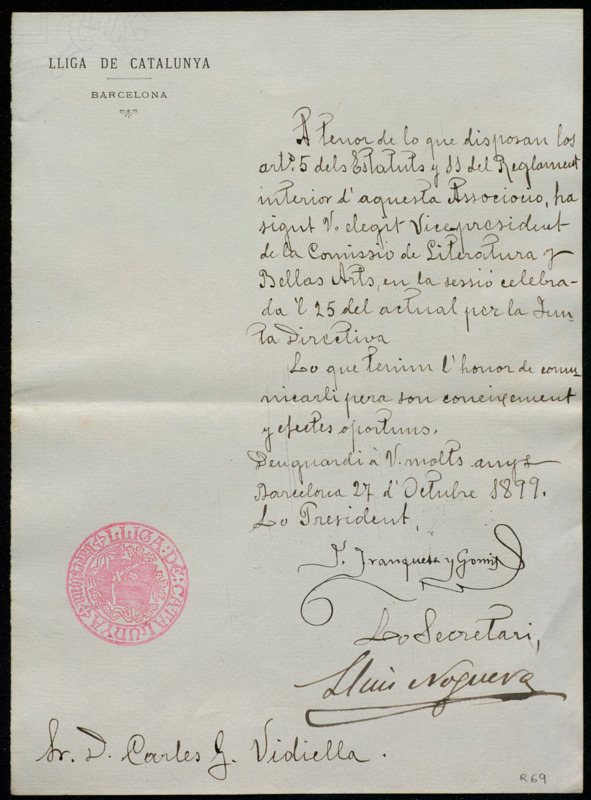 LLIGA DE CATALUNYA
BARCELONA
A tenor de lo que disposan los
art.s 5 dels Estatuts y 11 del Reglament
interior d'aquesta Associacio, ha
sigut V. elegit Vicepresident
de la Comissió de Literatura y
Bellas Arts, en la sessió celebra-
da 'l 25 del actual per la Jun-
ta Directiva
Lo que tenim l'honor de comu-
nicarli pera son coneixement
y efectes oportuns.
Deu guardi à V. molts anys
Barcelona 27 d'Octubre 1899.
Lo President,
Franquesa y Gomis
Lo Secretari,
Lluis Noguera
LLIGA·DE·CATALUNYA
Sr. D. Carles G. Vidiella.
R 69